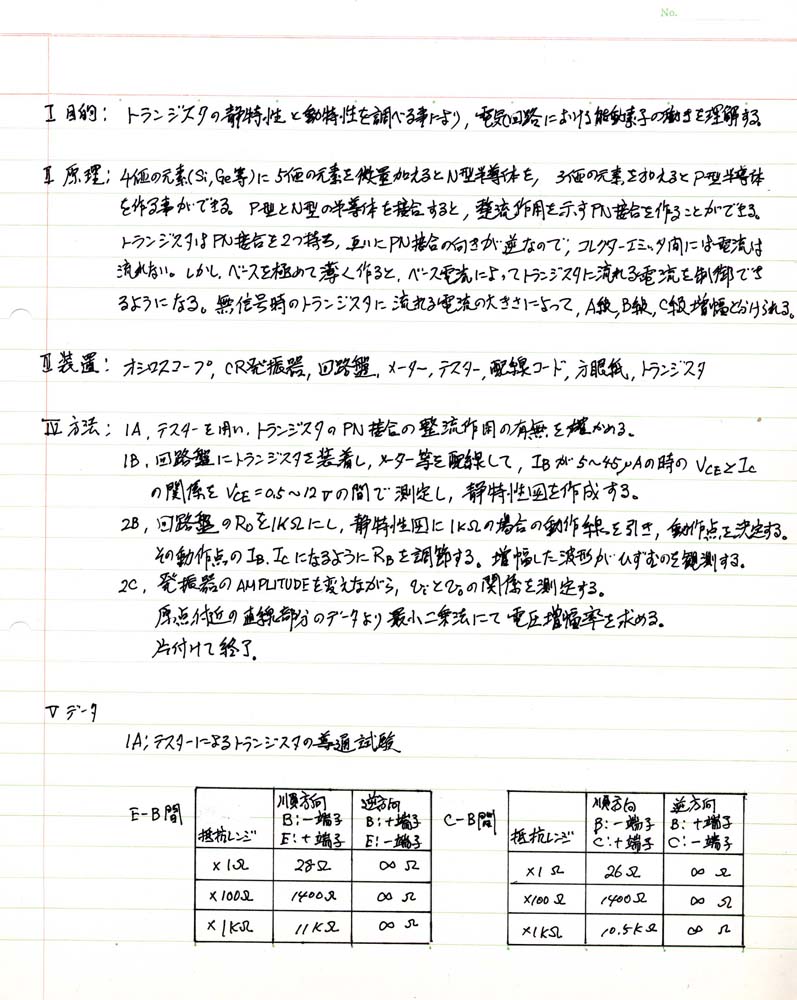 No.
I 目的: トランジスタの静特性と動特性を調べる事により, 電気回路における能動素子の働きを理解する。
II 原理: 4価の元素(Si, Ge等)に5価の元素を微量加えるとN型半導体を, 3価の元素を加えるとP型半導体
を作る事ができる。 P型とN型の半導体を接合すると, 整流作用を示すPN接合を作ることができる。
トランジスタはPN接合を2つ持ち, 互いにPN接合の向きが逆なので, コレクターエミッタ間には電流は
流れない。しかし, ベースを極めて薄く作ると, ベース電流によってトランジスタに流れる電流を制御でき
るようになる。無信号時のトランジスタに流れる電流の大きさによって, A級, B級, C級増幅と分けられる。
III 装置: オシロスコープ, CR発振器, 回路盤, メーター, テスター, 配線コード, 方眼紙, トランジスタ
IV 方法: 1A, テスターを用い, トランジスタのPN接合の整流作用の有無を確かめる。
1B, 回路盤にトランジスタを装着し, メーター等を配線して, IBが5~45μAの時のVCEとIC
の関係をVCE=0.5~12Vの間で測定し, 静特性図を作成する。
2B, 回路盤のR0を1KΩにし, 静特性図に1KΩの場合の動作線を引き, 動作点を決定する。
その動作点のIB, ICになるようにRBを調節する。増幅した波形がひずむのを観測する。
2C, 発振器のAMPLITUDEを変えながら, viとvoの関係を測定する。
原点付近の直線部分のデータより最小二乗法にて電圧増幅率を求める。
片付けて終了.
V データ
1A; テスターによるトランジスタの導通試験
E-B間
抵抗レンジ 順方向 B:-端子 E:+端子 逆方向 B:+端子 E:-端子
×1Ω 28Ω ∞Ω
×100Ω 1400Ω ∞Ω
×1KΩ 11KΩ ∞Ω
C-B間
抵抗レンジ 順方向 B:-端子 C:+端子 逆方向 B:+端子 C:-端子
×1Ω 26Ω ∞Ω
×100Ω 1400Ω ∞Ω
×1KΩ 10.5KΩ ∞Ω